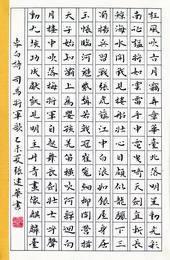 狂風吹古月竊弄章華臺北落明星動光彩
南征猛將如雲雷手中電擊倚天劍直斬長
鯨海水開我見樓船壯心目頗似龍驤下三
蜀揚兵習戰張虎旗江中白浪如銀屋身居
玉帳臨河魁紫髯若戟冠崔嵬細柳開營揖
天子始知灞上為嬰孩羌笛橫吹阿嚲迴向
月樓中吹落梅將軍自起舞長劍壯士呼聲
動九垓功成獻凱見明主丹青畫像麒麟臺
李白詩 司馬將軍歌 乙未夏張建華書